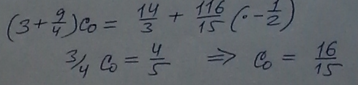 (3+9/4)C₀ = 14/3 + 116/15 (·-1/2)
3/4 C₀ = 4/5 ⇒ C₀ = 16/15